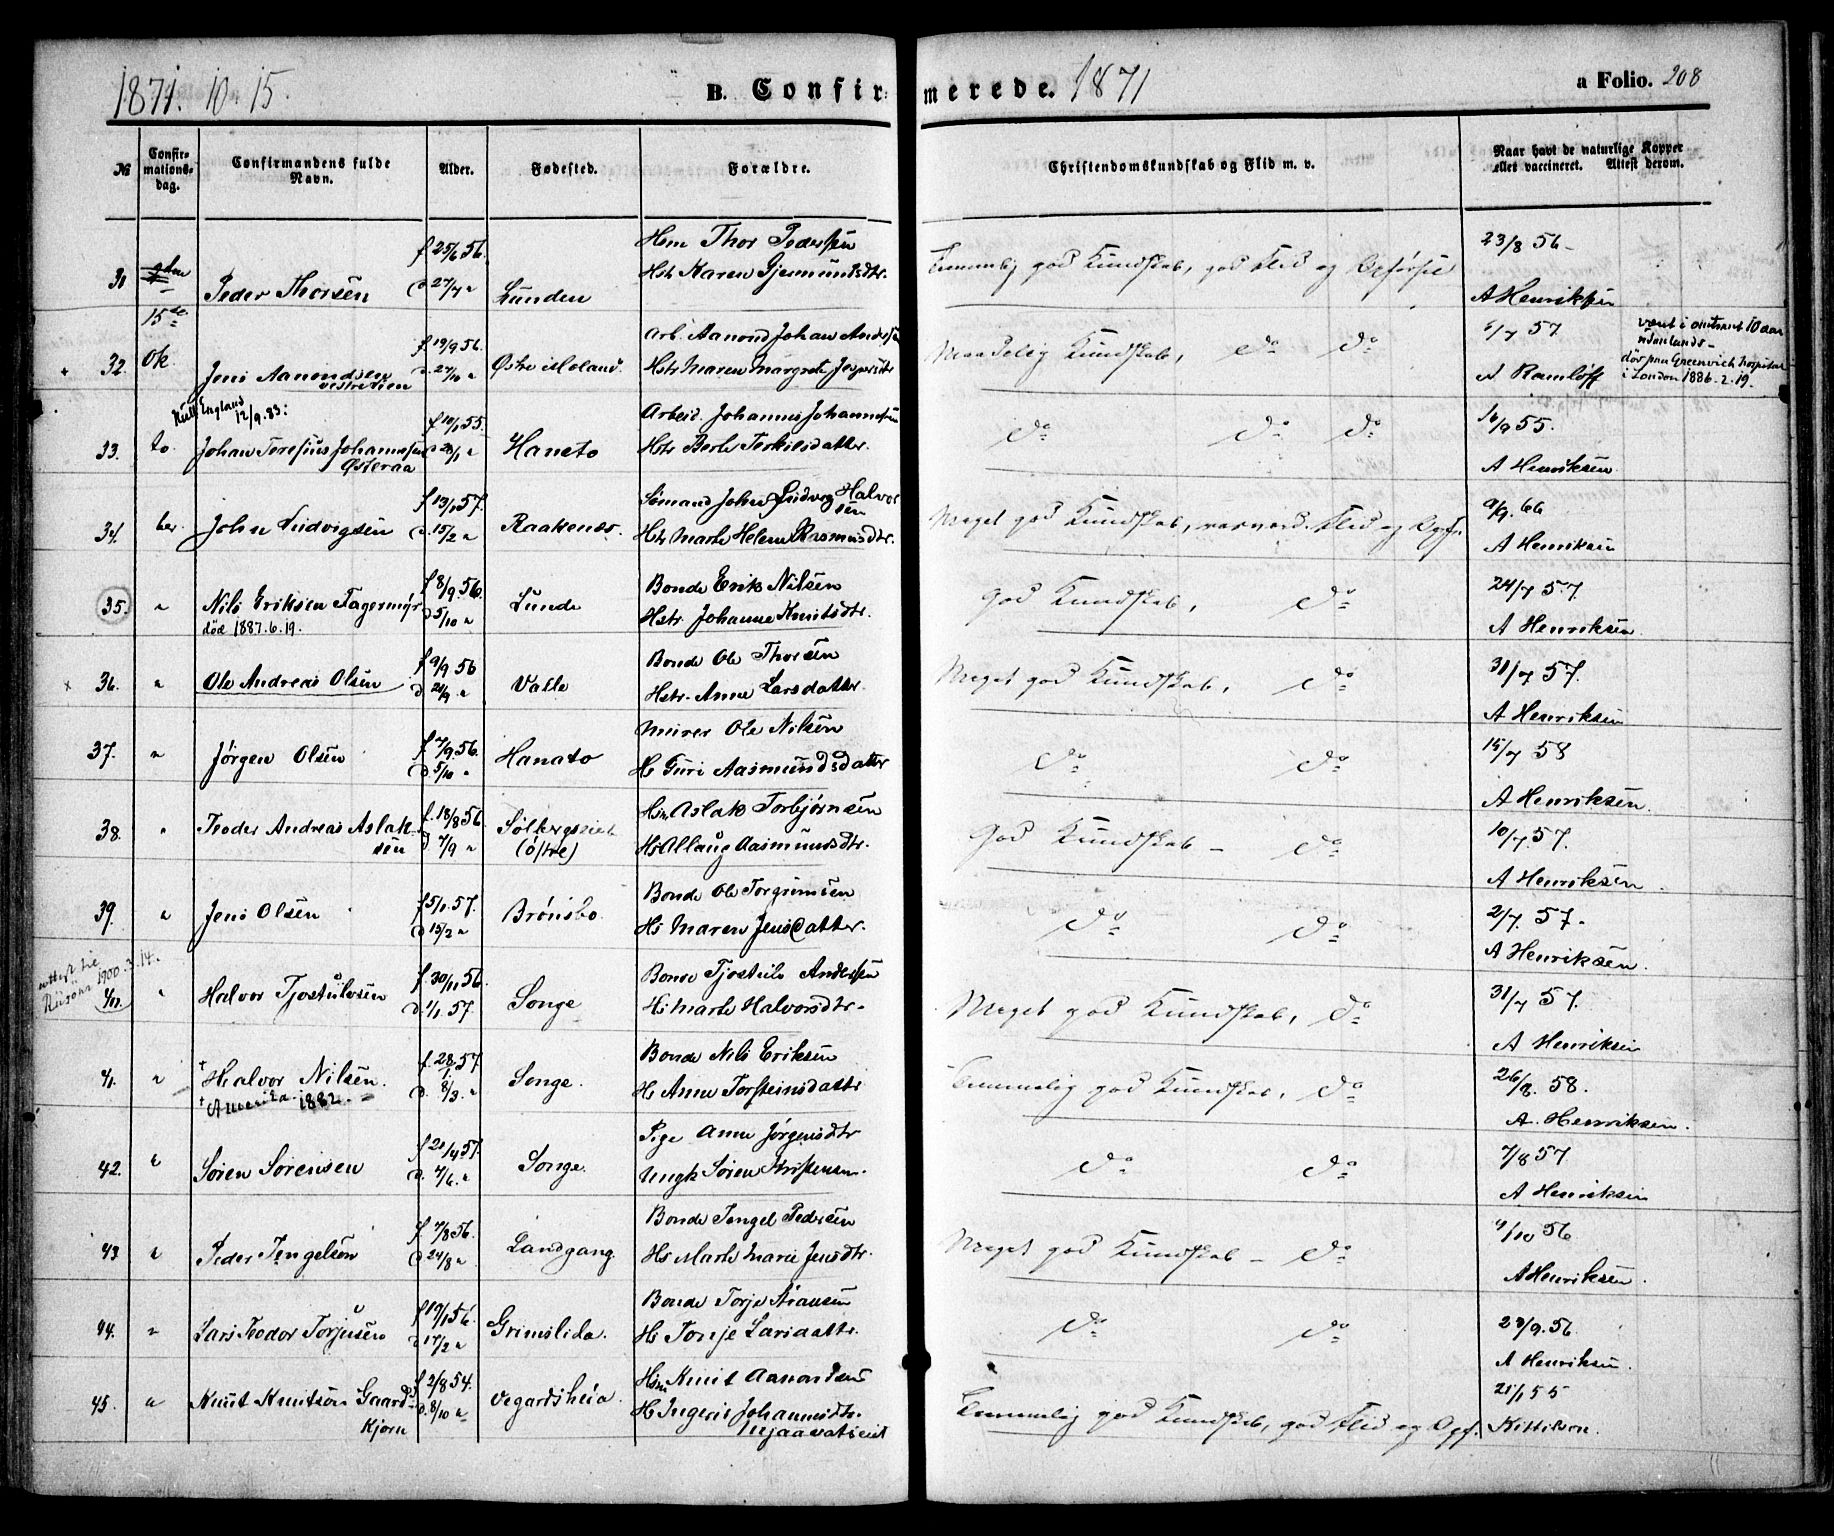 1871. 10. 15.
B. Confirmerede. 1871
a Folio. 208
№
Confir-
mations-
dag.
Confirmandens fulde
Navn.
Alder.
Fødested.
Forældre.
Christendomskundskab og Flid m. v.
Naar havt de naturlige Kopper
eller vaccineret. Attest derom.
31
15de
Peder Thorsen
f 25/6 56.
d 27/7 "
Lunden
Hsm Thor Pedersen
Hstr Karen Gjermundsdtr
Temmelig god Kundskab, god Flid og Opførsel
23/8 56-
A Henriksen
32.
Ok.
Jens Aanondsen
f 19/9 56.
d. 27/10 "
Østre Moland.
Arb. Aanond Johan Anders
Hstr Maren Margrete Jespersdtr
Maadelig Kundskab, do do
6/7 57
A Ramløff
været i omtrent 10 aar
udenlands-
død paa Greenvich hospital
i London 1886. 2. 19.
33.
to
England
12/9. 83:
Johan Teresius Johannesen
Østeraa
f 10/1 55.
d 28/1 "
Haneto
Arbeid. Johannes Johannesen
Hstr Berte Terkilsdatter.
do do do
16/9 55.
A Henriksen
34.
ber.
John Ludvigsen
f 13/1 57.
d. 15/2 "
Raakenes.
Sømand John Ludvig Halvor
sen
Hstr Marte Helene Rasmusdtr.
Meget god Kundskab, Flid og Opf.
9/9. 66
A Henriksen
35.
"
Nils Eriksen Fagermyr
död 1887. 6. 19.
f 8/9 56.
d 5/10 "
Lunde
Bonde Erik Nilsen
Hstr. Johanne Knutsdtr.
God Kundskab, do
24/7 57.
A Henriksen
x 36.
"
Ole Andreas Olsen
f 9/9 56
d 21/9 "
Valle
Bonde Ole Thorsen
Hstr. Anne Larsdatter.
Meget god Kundskab, do
31/7 57.
A Henriksen
37.
"
Jørgen Olsen
f 7/9 56.
d 5/10 "
Hanato
Murer Ole Nilsen
H Guri Aasmundsdatter
do do
15/7 58
A Henriksen.
38.
"
Teoder Andreas Aslak
sen
f. 18/8 56.
d 7/9 "
(østre)
Hsm Aslak Torbjørnsen
Hs Allaug Aasmundsdtr.
God Kundskab - do
10/7. 57.
A Henriksen.
39.
"
Jens Olsen
f 5/1 57.
d 15/2 "
Brönsbo.
Bonde Ole Torgrimsen
Hs Maren Jensdatter.
do do
2/7. 57.
A Henriksen.
attest til
Risöer 1900. 3. 14.
40.
"
Halvor Tjostulvsen
f. 30/11 56.
d. 1/1 57.
Songe
Bonde Tjostulv Andersen
Hs Marte Halvorsdtr.
Meget god Kundskab, do
31/7 57.
A Henriksen
41.
"
† Halvor Nilsen.
† Amerika. 1882.
f 28/1 57
d. 8/3. "
Songe.
Bonde Nils Eriksen
H Anne Torsteinsdatter
Temmelig god Kundskab, do
26/8. 58.
A. Henriksen.
42.
"
Sören Sörensen
f 21/4 57.
d. 7/6. "
Songe.
Pige Anne Jørgensdtr
Ungk Sören Kristensen.
do do
7/8 57
A Henriksen
43
"
Peder Tengelsen
f 7/8 56.
d 24/8 "
Landgang.
Bonde Tengel Pedersen
Hs Marte Marie Jensdtr.
Meget god Kundskab - do
9/10 56
A Henriksen.
44.
"
Lars Teodor Torjusen
f 19/1 56.
d 17/2 "
Grimslida.
Bonde Torje Aansen
H Tonje Larsdatter.
do do
23/9. 56.
A Henriksen.
45.
"
Knut Knutsön Gaards
Kjørn
f 2/8 54.
d. 8/10 "
Vegardsheia.
Hsm Knut Aanondsen
H Ingerid Johannesdtr.
Mjaavatneiet
Temmelig god Kundskab, god Flid og Opf.
21/1 55
Kittilsen.